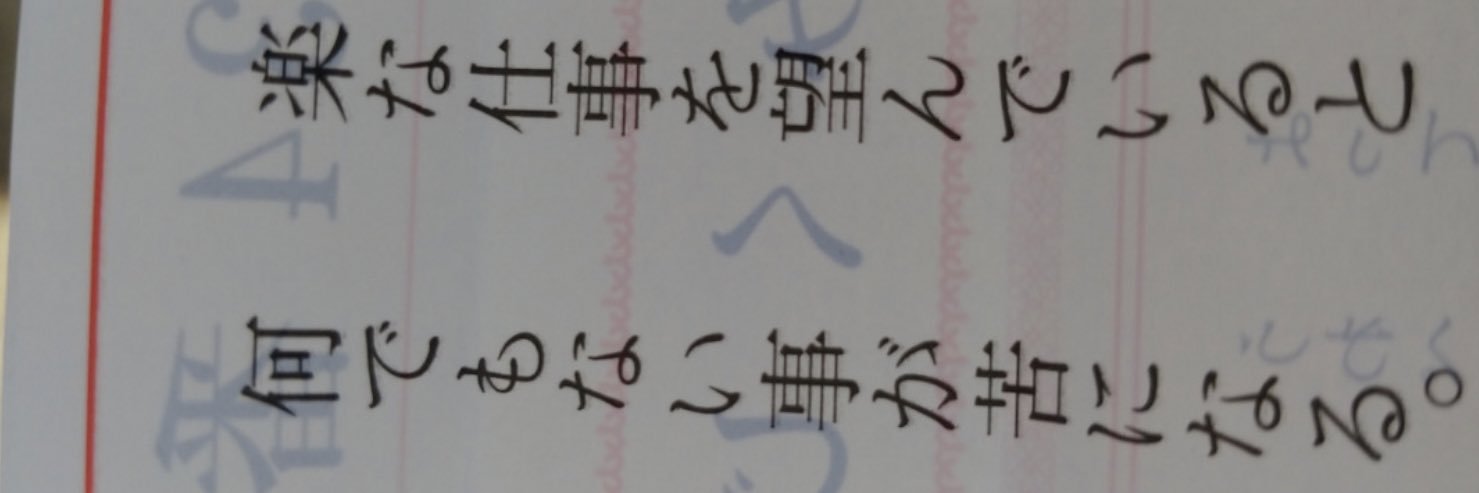 楽な仕事を望んでいると
何でもない事が苦になる。